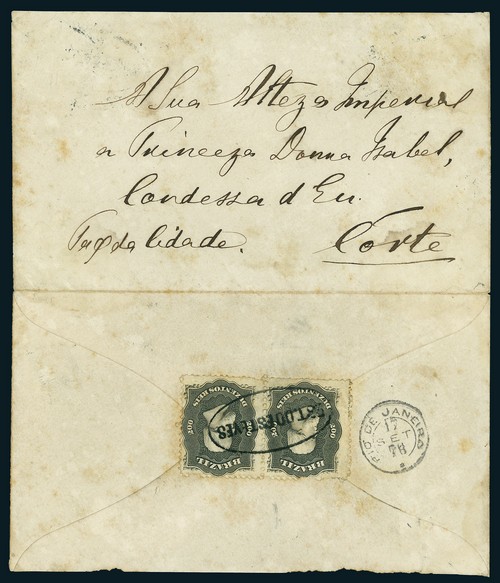 A Sua Alteza Imperial
a Princeza Donna Isabel,
Condessa d'Eu.
Paço da Cidade. Corte
DUZENTOS REIS DUZENTOS REIS
200 200 200 200
BRAZIL BRAZIL
RIO DE JANEIRO
17
SET
78